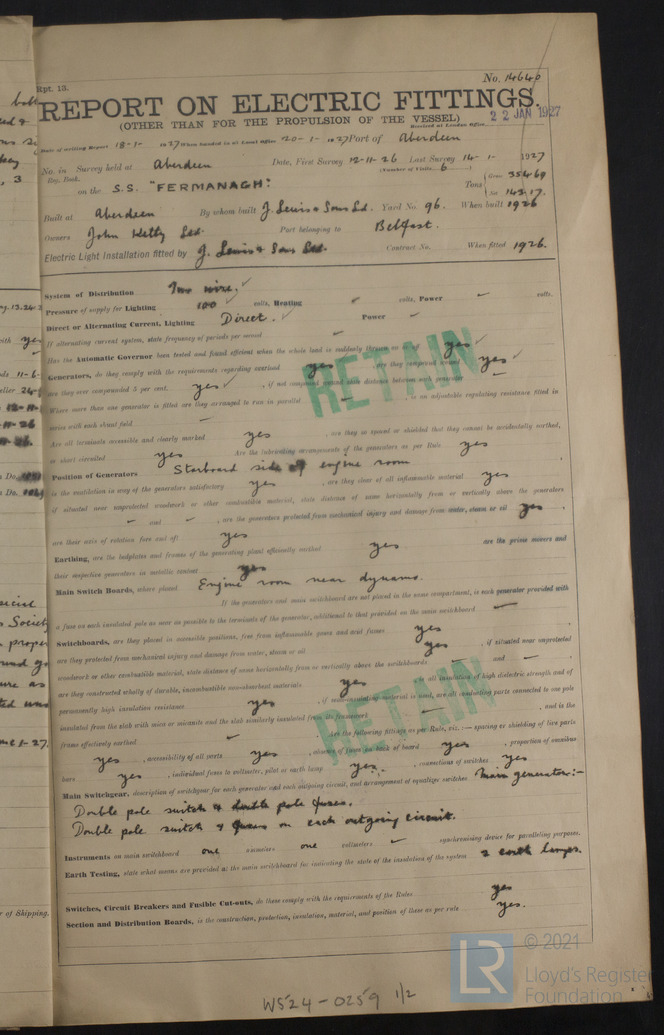 Rpt. 13.
No. 14640
REPORT ON ELECTRIC FITTINGS.
(OTHER THAN FOR THE PROPULSION OF THE VESSEL)
Received at London Office 22 JAN 1927
Date of writing Report 18-1- 1927 When handed in at Local Office 20-1-1927 Port of Aberdeen
No. in Survey held at Aberdeen Date, First Survey 12-11-26 Last Survey 14-1- 1927
Reg. Book. (Number of Visits 6)
on the S.S. "FERMANAGH" Tons Gross 354.69 Net 143.17
Built at Aberdeen By whom built J. Lewis & Sons Ld. Yard No. 96. When built 1926
Owners John Kelly Ltd. Port belonging to Belfast.
Electric Light Installation fitted by J. Lewis & Sons Ltd. Contract No. When fitted 1926.
System of Distribution Two wire.
Pressure of supply for Lighting 100 volts, Heating volts, Power volts.
Direct or Alternating Current, Lighting Direct. Power
If alternating current, state frequency of periods per second
Has the Automatic Governor been tested and found efficient when the whole load is suddenly thrown on or off yes
Generators, do they comply with the requirements regarding overload yes, are they compound wound yes
are they over compounded 5 per cent. yes, if not compound wound state distance between each generator
Where more than one generator is fitted are they arranged to run in parallel, is an adjustable regulating resistance fitted in
series with each shunt field
Are all terminals accessible and clearly marked yes, are they so spaced or shielded that they cannot be accidentally earthed,
or short circuited yes Are the lubricating arrangements of the generators as per Rule yes
Position of Generators Starboard side of engine room
is the ventilation in way of the generators satisfactory yes, are they clear of all inflammable material yes
if situated near unprotected woodwork or other combustible material, state distance of same horizontally from or vertically above the generators
and, are the generators protected from mechanical injury and damage from water, steam or oil yes
are their axis of rotation fore and aft yes
Earthing, are the bedplates and frames of the generating plant efficiently earthed yes are the prime movers and
their respective generators in metallic contact yes
Main Switch Boards, where placed Engine room near dynamo.
If the generators and main switchboard are not placed in the same compartment, is each generator provided with
a fuse on each insulated pole as near as possible to the terminals of the generator, additional to that provided on the main switchboard
Switchboards, are they placed in accessible positions, free from inflammable gases and acid fumes yes
are they protected from mechanical injury and damage from water, steam or oil yes, if situated near unprotected
woodwork or other combustible material, state distance of same horizontally from or vertically above the switchboards and
are they constructed wholly of durable, incombustible non-absorbent materials yes all insulation of high dielectric strength and of
permanently high insulation resistance yes, if semi-insulating material is used, are all conducting parts connected to one pole
insulated from the slab with mica or micanite and the slab similarly insulated from its framework, and is the
frame effectively earthed the following fittings as per Rule, viz.:— spacing or shielding of live parts
yes, accessibility of all parts yes, absence of fuses on back of board yes, proportion of omnibus
bars yes, individual fuses to voltmeter, pilot or earth lamp yes, connections of switches yes
Main Switchgear, description of switchgear for each generator and each outgoing circuit, and arrangement of equalizer switches Main generator:-
Double pole switch & double pole fuses.
Double pole switch & fuses on each outgoing circuit.
Instruments on main switchboard one ammeters one voltmeters synchronising device for paralleling purposes.
Earth Testing, state what means are provided at the main switchboard for indicating the state of the insulation of the system 2 earth lamps.
Switches, Circuit Breakers and Fusible Cut-outs, do these comply with the requirements of the Rules yes
Section and Distribution Boards, is the construction, protection, insulation, material, and position of these as per rule yes.
RETAIN
RETAIN
W524-0259 1/2
LR
© 2021
Lloyd's Register
Foundation